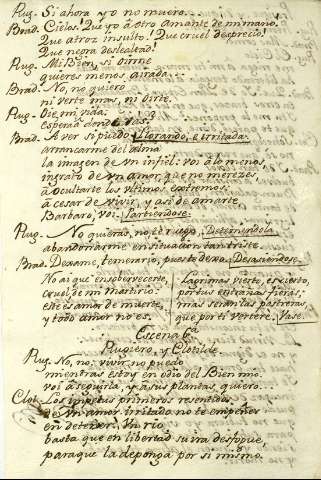 Rug. Si ahora yo no muero...
Brad. Cielos! Que yo à otro Amante de mi mano!
Que atroz insulto! Que cruel desprecio!
Que negra deslealtad!
Rug. Mi Bien, si oirme
quieres menos airada...
Brad. No, no quiero
ni verte mas, ni oirte.
Rug. Oie mi vida;
Espera: donde vas?
Brad. A ver si puedo Llorando, è irritada.
arrancarme del alma
la imagen de un infiel: voi à lo menos,
ingrato de un amor, que no mereces,
à ocultarte los ultimos extremos,
à cesar de vivir, y asi de amarte
Barbaro, voi. Partiendose.
Rug. No quieras, no, te ruego, Deteniendola
abandonarme en situacion tan triste.
Brad. Dexame, temerario, puesto de xo. Desasiendose.
No ai que ensobervecerte,
Cruel, de mi martirio:
este es amor de muerte,
y todo amor no es.
Lagrimas vierto, es cierto,
por tus entrañas
mas seran las postreras,
que por ti verteré. Vase.
Escena 6.a
Rugiero, y Clotilde.
Rug. No, no: vivir no puedo
mientras estoy en odio del Bien mio.
voi à seguirla, y à sus plantas quiero...
Clot. Los impetus primeros resentidos
de un amor irritado no te empeñes
en detener. Un rio
basta que en libertad su ira desfogue,
para que la deponga por si mismo.